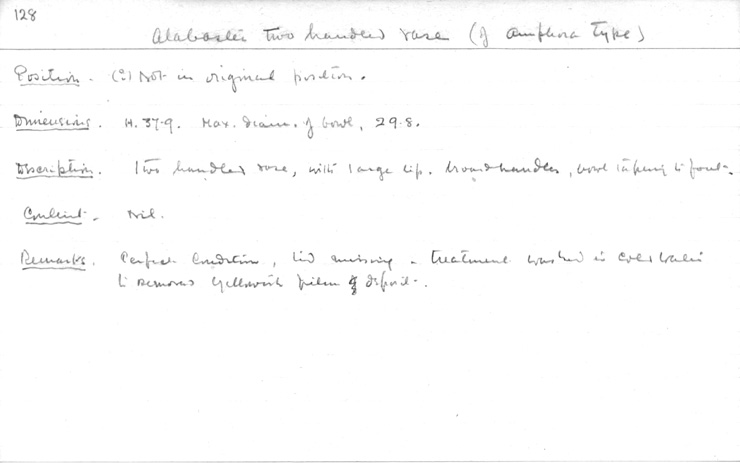 128
Alabaster two handled vase (of amphora type)
Position. (?) Not in original position.
Dimensions. H. 37.9. Max. diam. of bowl, 29.8.
Description. Two handled vase, with large lip. broad handles, bowl tapering to point.
Content. Nil.
Remarks. Perfect condition, lid missing - treatment washed in cold water
to remove yellowish film of deposit.